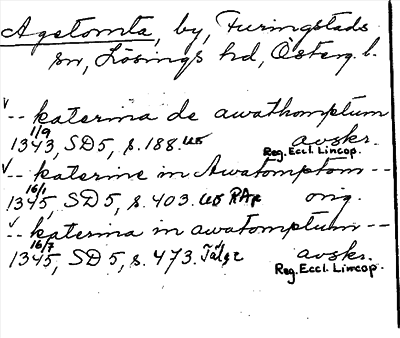 Agetomta, by, Furingstads
sn, Lösings hd, Österg. l.
-- katerina de awathomptum
1/9
1343, SD 5, s. 188. avskr.
Reg. Eccl. Lincop.
-- katerine in Awatomptom --
16/1
1345, SD 5, s. 403. RAp orig.
-- katerina in awatomptum --
16/7
1345, SD 5, s. 473. avskr.
Reg. Eccl. Lincop.